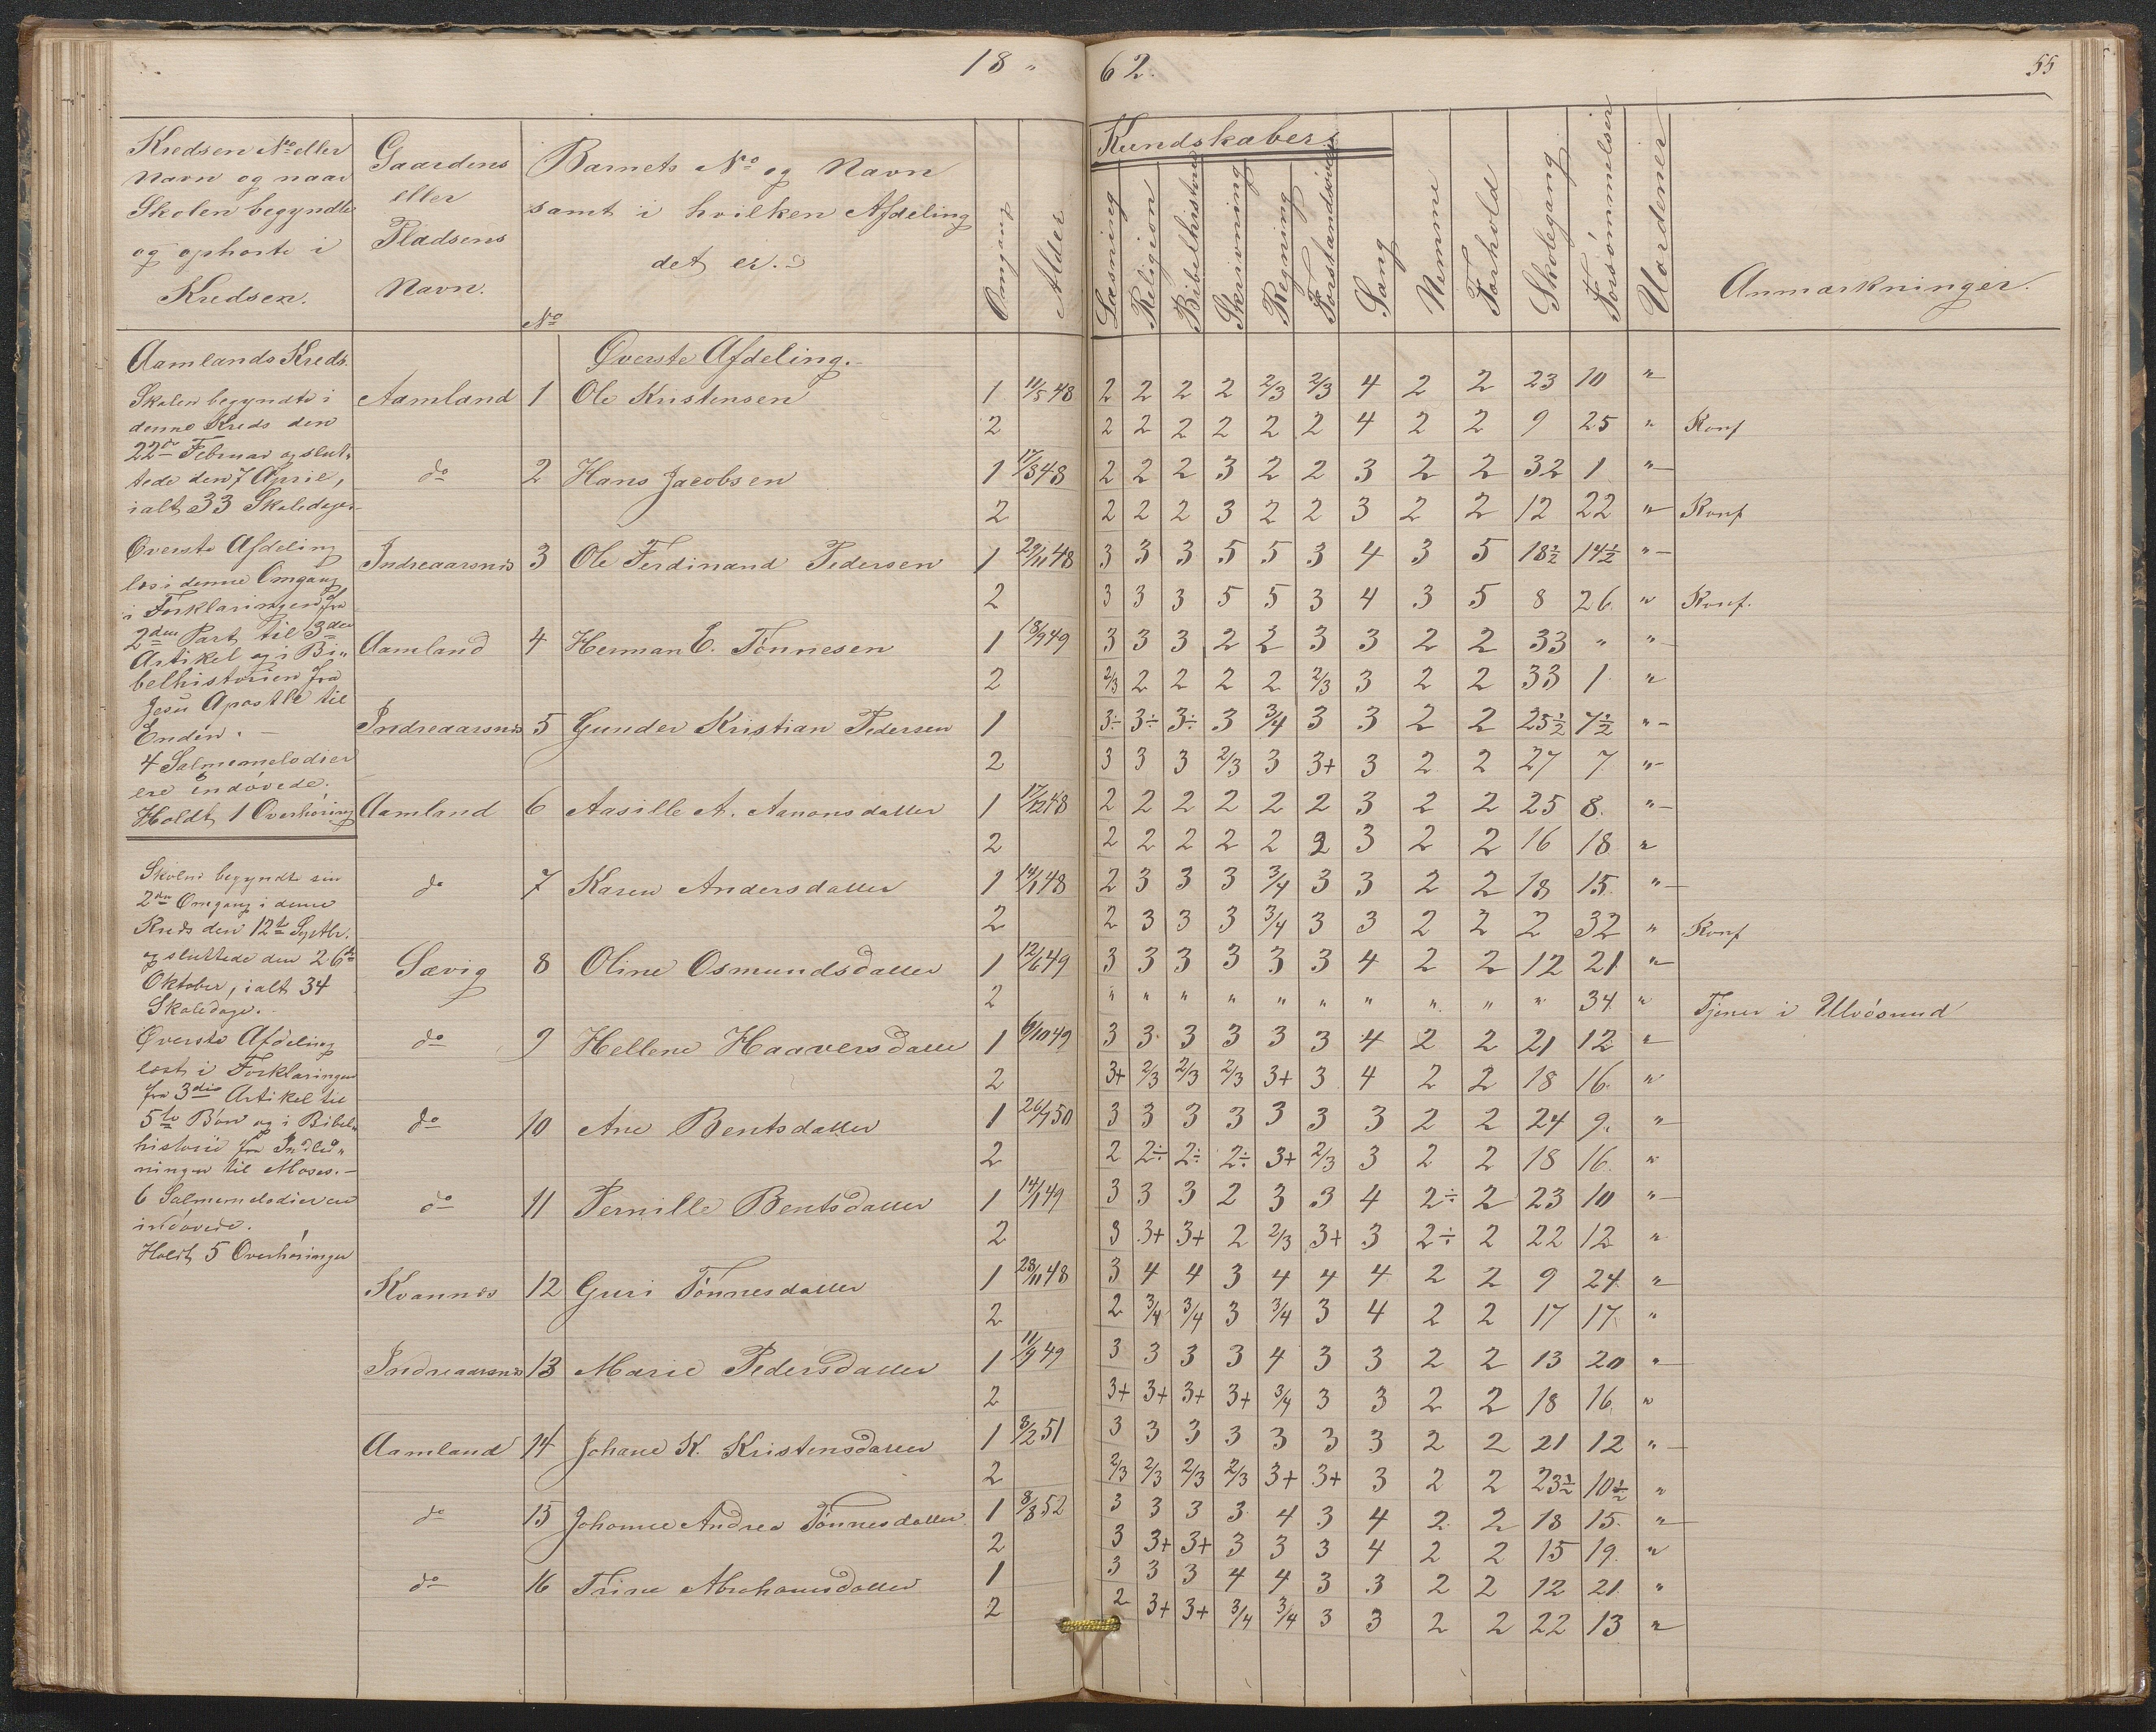 18 " 62.
55
Kredsens No eller
Navn og naar
Skolen begyndte
og ophørte i
Kredsen.
Gaardens
eller
Pladsens
Navn.
Barnets No og Navn
samt i hvilken Afdeling
det er.
No
Omgang
Alder
Kundskaber
Læsning
Religion
Bibelhistorie
Skrivning
Regning
Forstandsøvelse
Sang
Nemme
Forhold
Skolegang
Forsømmelser
Uordener
Anmærkninger.
Aamlands Kreds.
Skolen begyndte i
denne Kreds den
22de Februar og slut-
tede den 7 April,
ialt 33 Skoledage.
Øverste Afdeling
læs i denne Omgang
i Forklaringen fra
2den Part til 3die
Artikel og i Bi-
belhistorien fra
Jesu Apostle til
Enden. —
4 Salmemelodier
ere indøvede.
Holdt 1 Overhøring
Skolen begyndte sin
2den Omgang i denne
Kreds den 12te Septbr.
og sluttede den 26de
Oktober, ialt 34
Skoledage.
Øverste Afdeling
læst i Forklaringen
fra 3die Artikel til
5te Bøn og i Bibel-
historie fra Indled-
ningen til Moses. —
6 Salmemelodier ere
indøvede.
Holdt 5 Overhøringer
Øverste Afdeling.
Aamland 1 Ole Kristensen 1 11/5 48 2 2 2 2 2/3 2/3 4 2 2 23 10 "
2 2 2 2 2 2 2 4 2 2 9 25 " Konf
do 2 Hans Jacobsen 1 17/8 48 2 2 2 3 2 2 3 2 2 32 1 "
2 2 2 2 3 2 2 3 2 2 12 22 " Konf
Indreaarsnes 3 Ole Ferdinand Pedersen 1 29/11 48 3 3 3 5 5 3 4 3 5 18½ 14½ "
2 3 3 3 5 5 3 4 3 5 8 26 " Konf.
Aamland 4 Herman E. Tønnesen 1 13/9 49 3 3 3 2 2 3 3 2 2 33 " "
2 2/3 2 2 2 2 2/3 3 2 2 33 1 "
Indreaarsnes 5 Gunder Kristian Pedersen 1 3÷ 3÷ 3÷ 3 3/4 3 3 2 2 25½ 7½ "
2 3 3 3 2/3 3 3+ 3 2 2 27 7 "
Aamland 6 Aasille A. Aanonsdatter 1 17/12 48 2 2 2 2 2 2 3 2 2 25 8 "
2 2 2 2 2 2 2 3 2 2 16 18 "
do 7 Karen Andersdatter 1 14/1 48 2 3 3 3 3/4 3 3 2 2 18 15 "
2 2 3 3 3 3/4 3 3 2 2 2 32 " Konf
Sævig 8 Oline Osmundsdatter 1 12/6 49 3 3 3 3 3 3 4 2 2 12 21 "
2 " " " " " " " " " " 34 " Tjener i Ulvøsund
do 9 Hellene Haaversdatter 1 6/10 49 3 3 3 3 3 3 4 2 2 21 12 "
2 3+ 2/3 2/3 2/3 3+ 3 4 2 2 18 16 "
do 10 Ane Bentsdatter 1 26/7 50 3 3 3 3 3 3 3 2 2 24 9 "
2 2 2÷ 2÷ 2÷ 3+ 2/3 3 2 2 18 16 "
do 11 Pernille Bentsdatter 1 14/1 49 3 3 3 2 3 3 4 2÷ 2 23 10 "
2 3 3+ 3+ 2 2/3 3+ 3 2÷ 2 22 12 "
Kvannes 12 Guri Tønnesdatter 1 28/11 48 3 4 4 3 4 4 4 2 2 9 24 "
2 2 3/4 3/4 3 3/4 3 4 2 2 17 17 "
Indreaarsnes 13 Marie Pedersdatter 1 11/9 49 3 3 3 3 4 3 3 2 2 13 20 "
2 3+ 3+ 3+ 3+ 3/4 3 3 2 2 18 16 "
Aamland 14 Johane K. Kristensdatter 1 8/2 51 3 3 3 3 3 3 3 2 2 21 12 "
2 2/3 2/3 2/3 2/3 3+ 3+ 3 2 2 23½ 10½ "
do 15 Johanne Andrea Tønnesdatter 1 8/8 52 3 3 3 3 4 3 4 2 2 18 15 "
2 3 3+ 3+ 3 3 3 4 2 2 15 19 "
do 16 Trine Abrahamsdatter 1 3 3 3 4 4 3 3 2 2 12 21 "
2 2 3+ 3+ 3/4 3/4 3 3 2 2 22 13 "